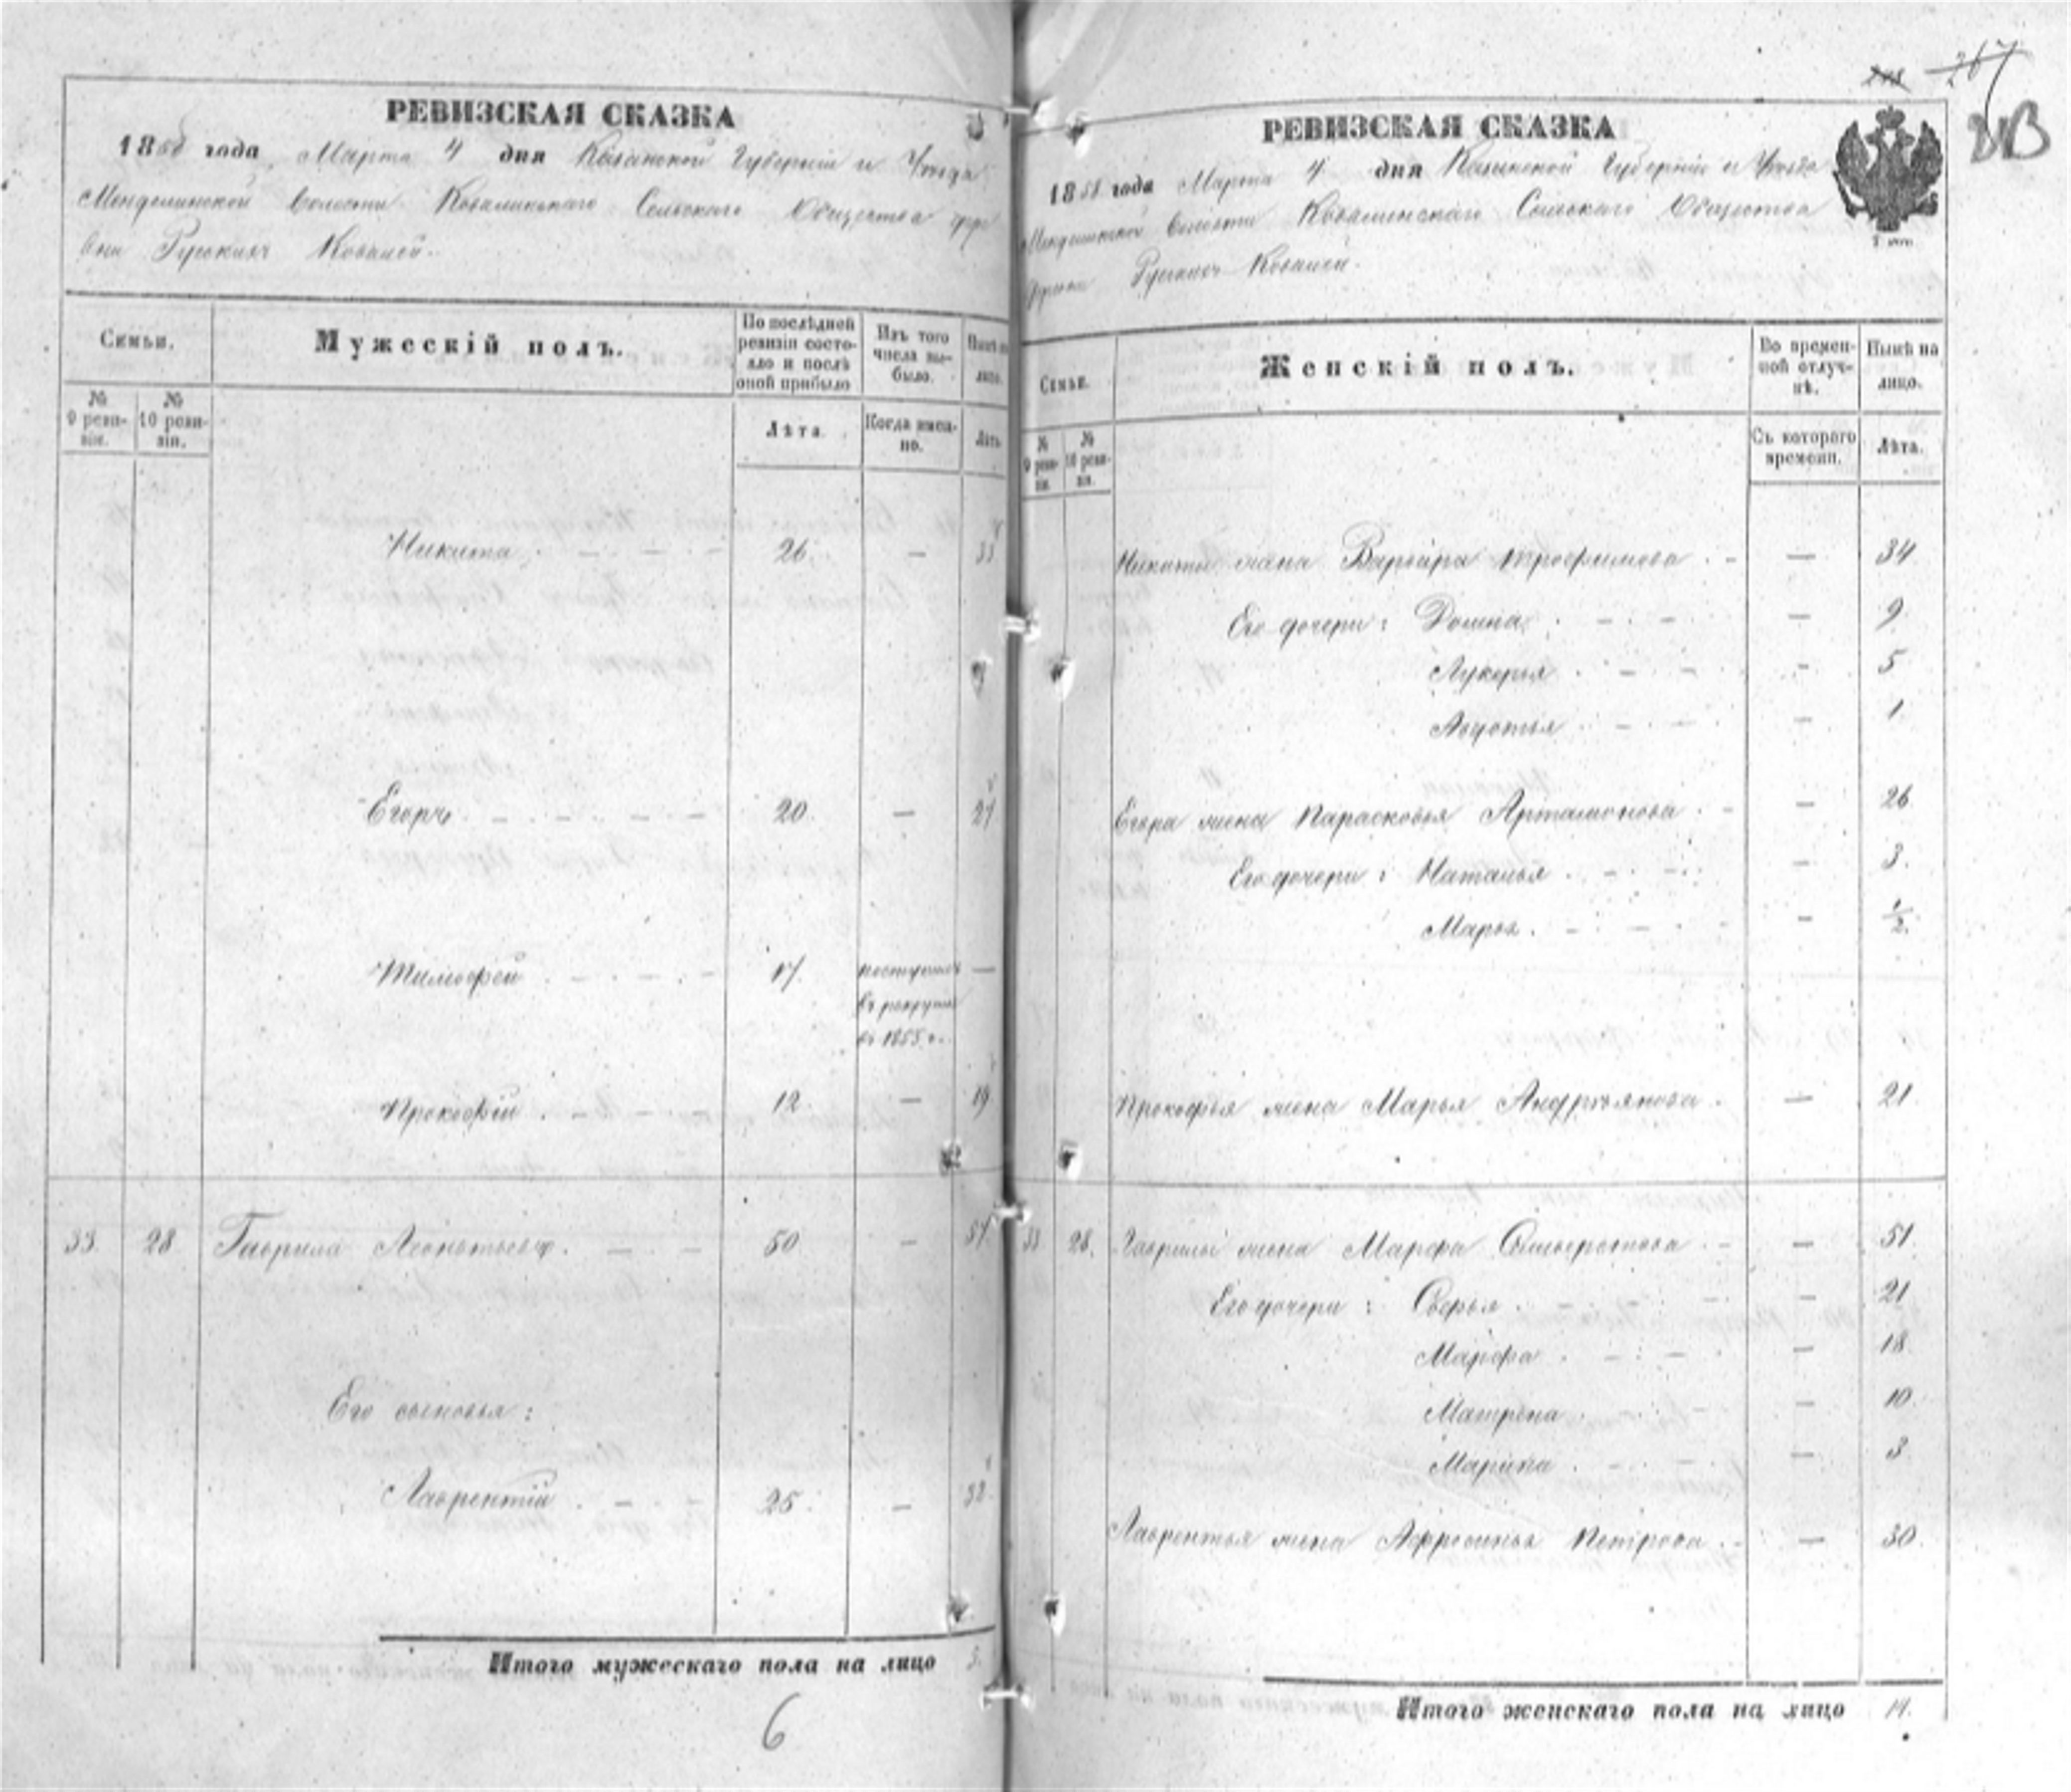 РЕВИЗСКАЯ СКАЗКА
1858 года Марта 4 дня Казанской Губерніи и Уѣзда
Менделинской волости Ковалинскаго Сельскаго Общества дере
вни Русскихъ Ковалей.
Семьи.
Мужескій полъ.
По послѣдней ревизіи состояло и послѣ оной прибыло
Изъ того числа выбыло.
Нынѣ на лицо.
№ 9 ревизіи.
№ 10 ревизіи.
Лѣта.
Когда именно.
Лѣта
Никита 26. — 33
Егоръ 20. — 27
Тимофей 17. поступилъ —
въ рекруты
въ 1855 г.
Прокофій 12 — 19
33. 28 Гаврила Леонтьевъ. 50 — 57
Его сыновья:
Лаврентій 25. — 32.
Итого мужескаго пола на лицо 5.
6
267
РЕВИЗСКАЯ СКАЗКА
1858 года Марта 4 дня Казанской Губерніи и Уѣзда
Менделинской волости Ковалинскаго Сельскаго Общества
деревни Русскихъ Ковалей.
Семьи.
Женскій полъ.
Во временной отлучкѣ.
Нынѣ на лицо.
№ 9 ревизіи.
№ 10 ревизіи.
Съ котораго времени.
Лѣта.
Никиты жена Варвара Трофимова — 34
Его дочери: Домна — 9.
Лукерья — 5
Авдотья — 1
Егора жена Парасковья Артамонова — 26
Его дочери: Наталья — 3.
Марья — 1/2.
Прокофья жена Марья Андреянова — 21.
33 28. Гаврилы жена Марфа Сельверстова — 51.
Его дочери: — 21
Марфа — 18
Матрена — 10
Марина — 3
Лаврентья жена Афросинья Петрова — 30
Итого женскаго пола на лицо 14.